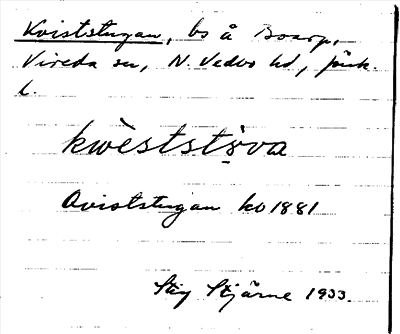 Kviststugan, bs å Boarp,
Vireda sn, N. Vedbo hd, Jönk.
l.
kwèststōva
Qviststugan ko 1881
Stig Stjärne 1933.